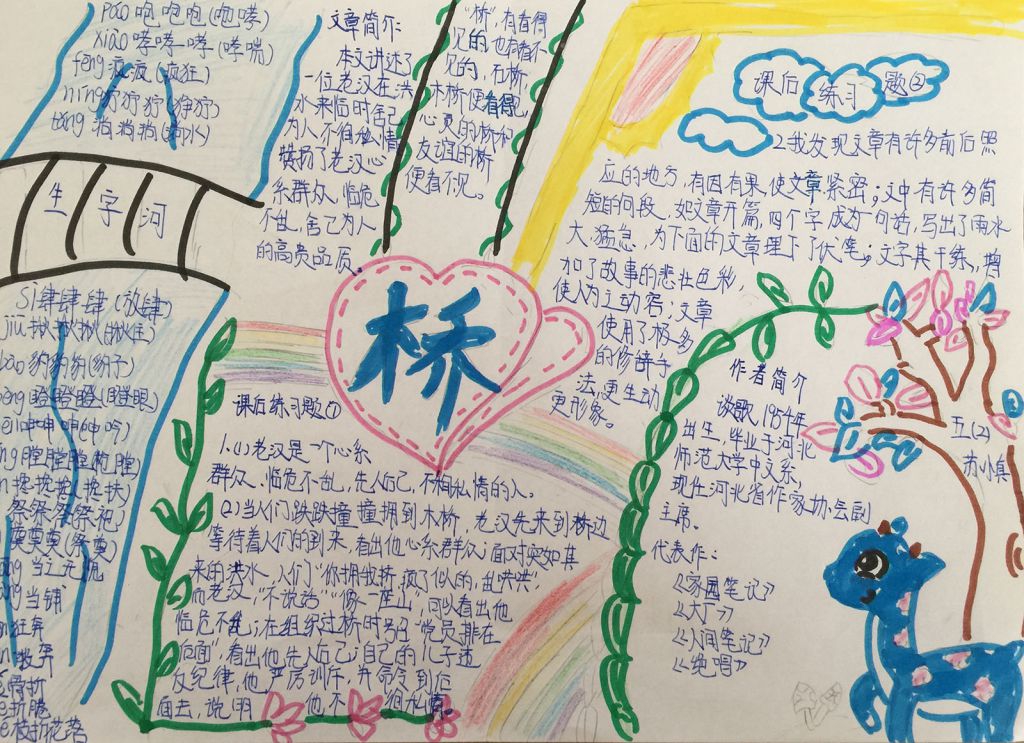 páo 咆 咆 咆 (咆哮)
xiào 哮 哮 哮 (哮喘)
fēng 疯 疯 (疯狂)
níng 狞 狞 狞 (狰狞)
生字河
sì 肆 肆 肆 (放肆)
jiū 揪 揪 揪 (揪住)
bào 豹 豹 豹 (豹子)
瞪 瞪 瞪 (瞪眼)
呻 呻 呻 (呻吟)
膛
搀 搀 搀 (搀扶)
祭 祭 祭 (祭祀)
奠 奠 奠 (祭奠)
当 当铺
狂奔
投奔
骨折
折腾
枝折花落
文章简介:
本文讲述了
一位老汉在洪
水来临时舍己
为人不徇私情
赞扬了老汉心
系群众、临危
不乱,舍己为人
的高贵品质。
“桥”,有看得
见的,也有看不
见的,石桥
木桥便看得见,
心灵的桥和
友谊的桥
便看不见。
桥
课后练习题①
1.(1)老汉是一个心系
群众、临危不乱,先人后己,不徇私情的人。
(2)当人们跌跌撞撞拥到木桥,老汉先来到桥边
等待着人们的到来,看出他心系群众;面对突如其
来的洪水,人们“你拥我挤,疯了似的,乱哄哄”
而老汉,“不说话”“像一座山”可以看出他
临危不乱;在组织过桥时号召“党员排在
后面”看出他先人后己;自己的儿子违
反纪律,他严厉训斥,并命令到后
面去,说明他不徇私情。
课后练习题②
2.我发现文章有许多前后照
应的地方,有因有果,使文章紧密;文中有许多简
短的句段,如文章开篇,四个字成为一句话,写出了雨水
大、猛急,为下面的文章埋下了伏笔;文字其干练,增
加了故事的悲壮色彩,
使人为之动容;文章
使用了极多
的修辞手
法,更生动
更形象。
作者简介
谈歌,1954年
出生,毕业于河北
师范大学中文系,
现任河北省作家协会副
主席。
代表作:
《家园笔记》
《大厂》
《人间笔记》
《绝唱》
五(2)